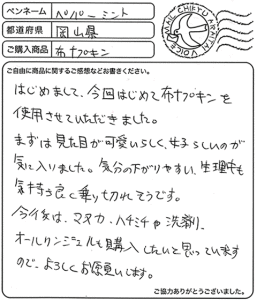 ペンネーム ペパーミント
都道府県 岡山県
ご購入商品 布ナプキン
MAIL CHIEYU ARATAI VOICE
ご自由に商品に関するご感想などお書きください。
はじめまして、今回はじめて布ナプキンを
使用させていただきました。
まずは見た目が可愛いらしく、女子らしいのが
気に入りました。気分の下がりやすい、生理中も
気持ち良く乗り切れそうです。
今後は、マヌカハチミチや洗剤、
オールインジェルも購入したいと思っています
ので、よろしくお願いします。
ご協力ありがとうございました。